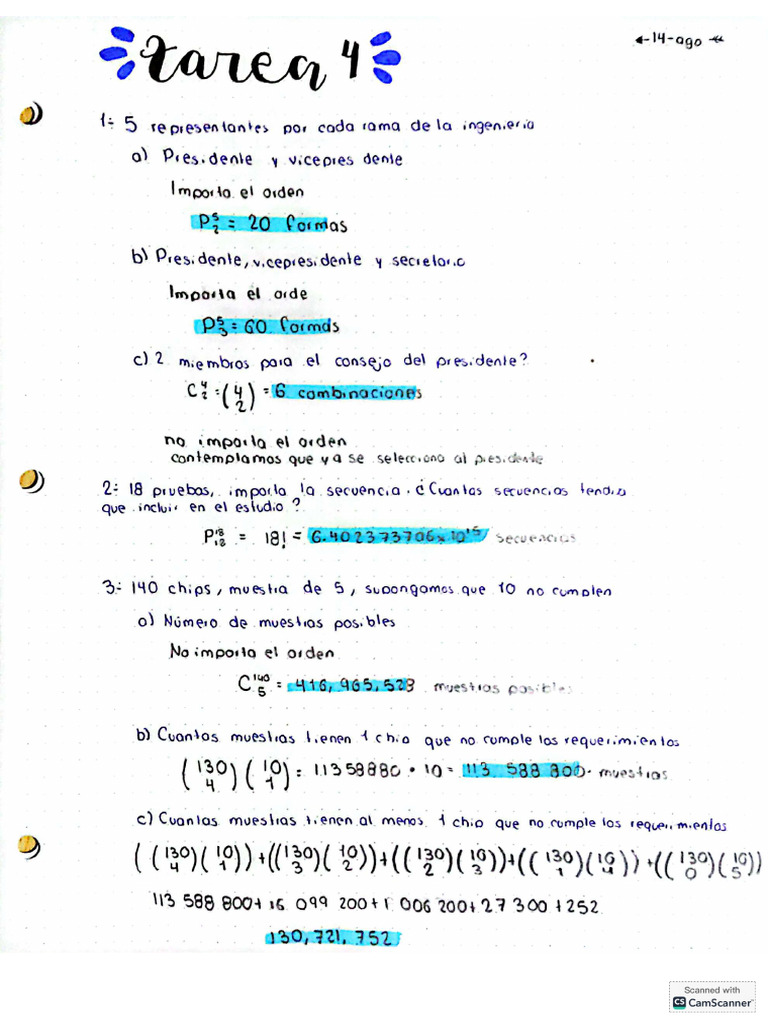 tarea 4
14-ago
1:- 5 representantes por cada rama de la ingenieria
a) Presidente y vicepresidente
Importa el orden
P⁵₂ = 20 formas
b) Presidente, vicepresidente y secretario
Importa el orde
P⁵₃ = 60 formas
c) 2 miembros para el consejo del presidente?
C⁴₂ = (4 2) = 6 combinaciones
no importa el orden
contemplamos que ya se selecciono al presidente
2:- 18 pruebas, importa la secuencia. ¿Cuantas secuencias tendra
que incluir en el estudio?
P¹⁸₁₈ = 18! = 6.402373706x10¹⁵ secuencias
3:- 140 chips, muestra de 5, supongamos que 10 no cumplen
a) Número de muestras posibles
No importa el orden
C¹⁴⁰₅ = 416,965,528 muestras posibles
b) Cuantas muestras tienen 1 chip que no cumple los requerimientos
(130 4)(10 1) = 11358880 • 10 = 113 588 800. muestras
c) Cuantas muestras tienen al menos 1 chip que no cumple los requerimientos
((130 4)(10 1))+((130 3)(10 2))+((130 2)(10 3))+((130 1)(10 4))+((130 0)(10 5))
113 588 800+16 099 200+1 006 200+27 300+252
130,721,752
Scanned with
CS CamScanner